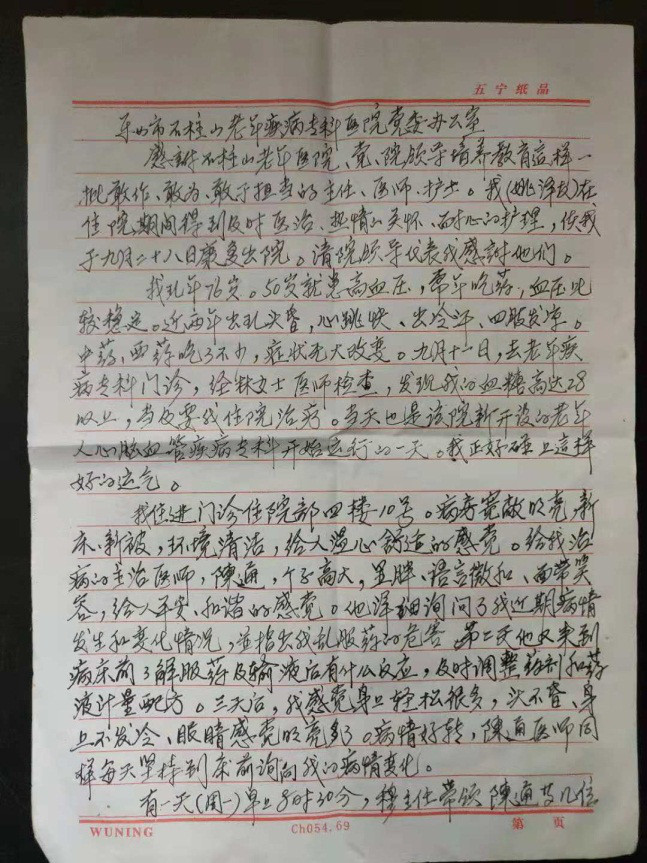 五宁纸品
乐山市石柱山老年疾病专科医院党委办公室
感謝石柱山老年医院、党、院领导培养教育這样一
批敢作、敢为、敢于担当的主任、医师、护士。我(姚泽)在
住院期间得到及时医治、热情的关怀、耐心的护理，使我
于九月二十八日康复出院。请院领导代表我感謝他们。
我现年76岁。50岁就患高血压，常年吃药，血压比
较穩定。近两年出现头昏，心跳快、出冷汗、四肢发凉。
中药、西药吃了不少，症状无大改变。九月十一日，去老年疾
病专科门诊，经林女士医师检查，发现我的血糖高达28
以上，当及要我住院治疗。当天也是该院新开设的老年
人心脑血管疾病专科开始运行的一天。我正好碰上這样
好的运气。
我住进门诊住院部四楼-10号。病房宽敞明亮新
床、新被，环境清洁，给人温心舒适的感觉。给我治
病的主治医师，陳通，个子高大，显胖、语言微和、面带笑
容，给人平安、和谐的感觉。他详细询问了我近期病情
发生和变化情况，並指出我乱服药的危害 第二天他又来到
病床前了解服药及输液后有什么反应，及时调整药剂和药
液计量配方。三天后，我感觉身上轻松很多，头不昏、身
上不发冷、眼睛感觉明亮多了。病情好转，陳通医师同
样每天坚持到床前询问我的病情变化。
有一天(周一)早上8时30分，穆主任带领陳通及几位
WUNING
Ch054.69
第 页